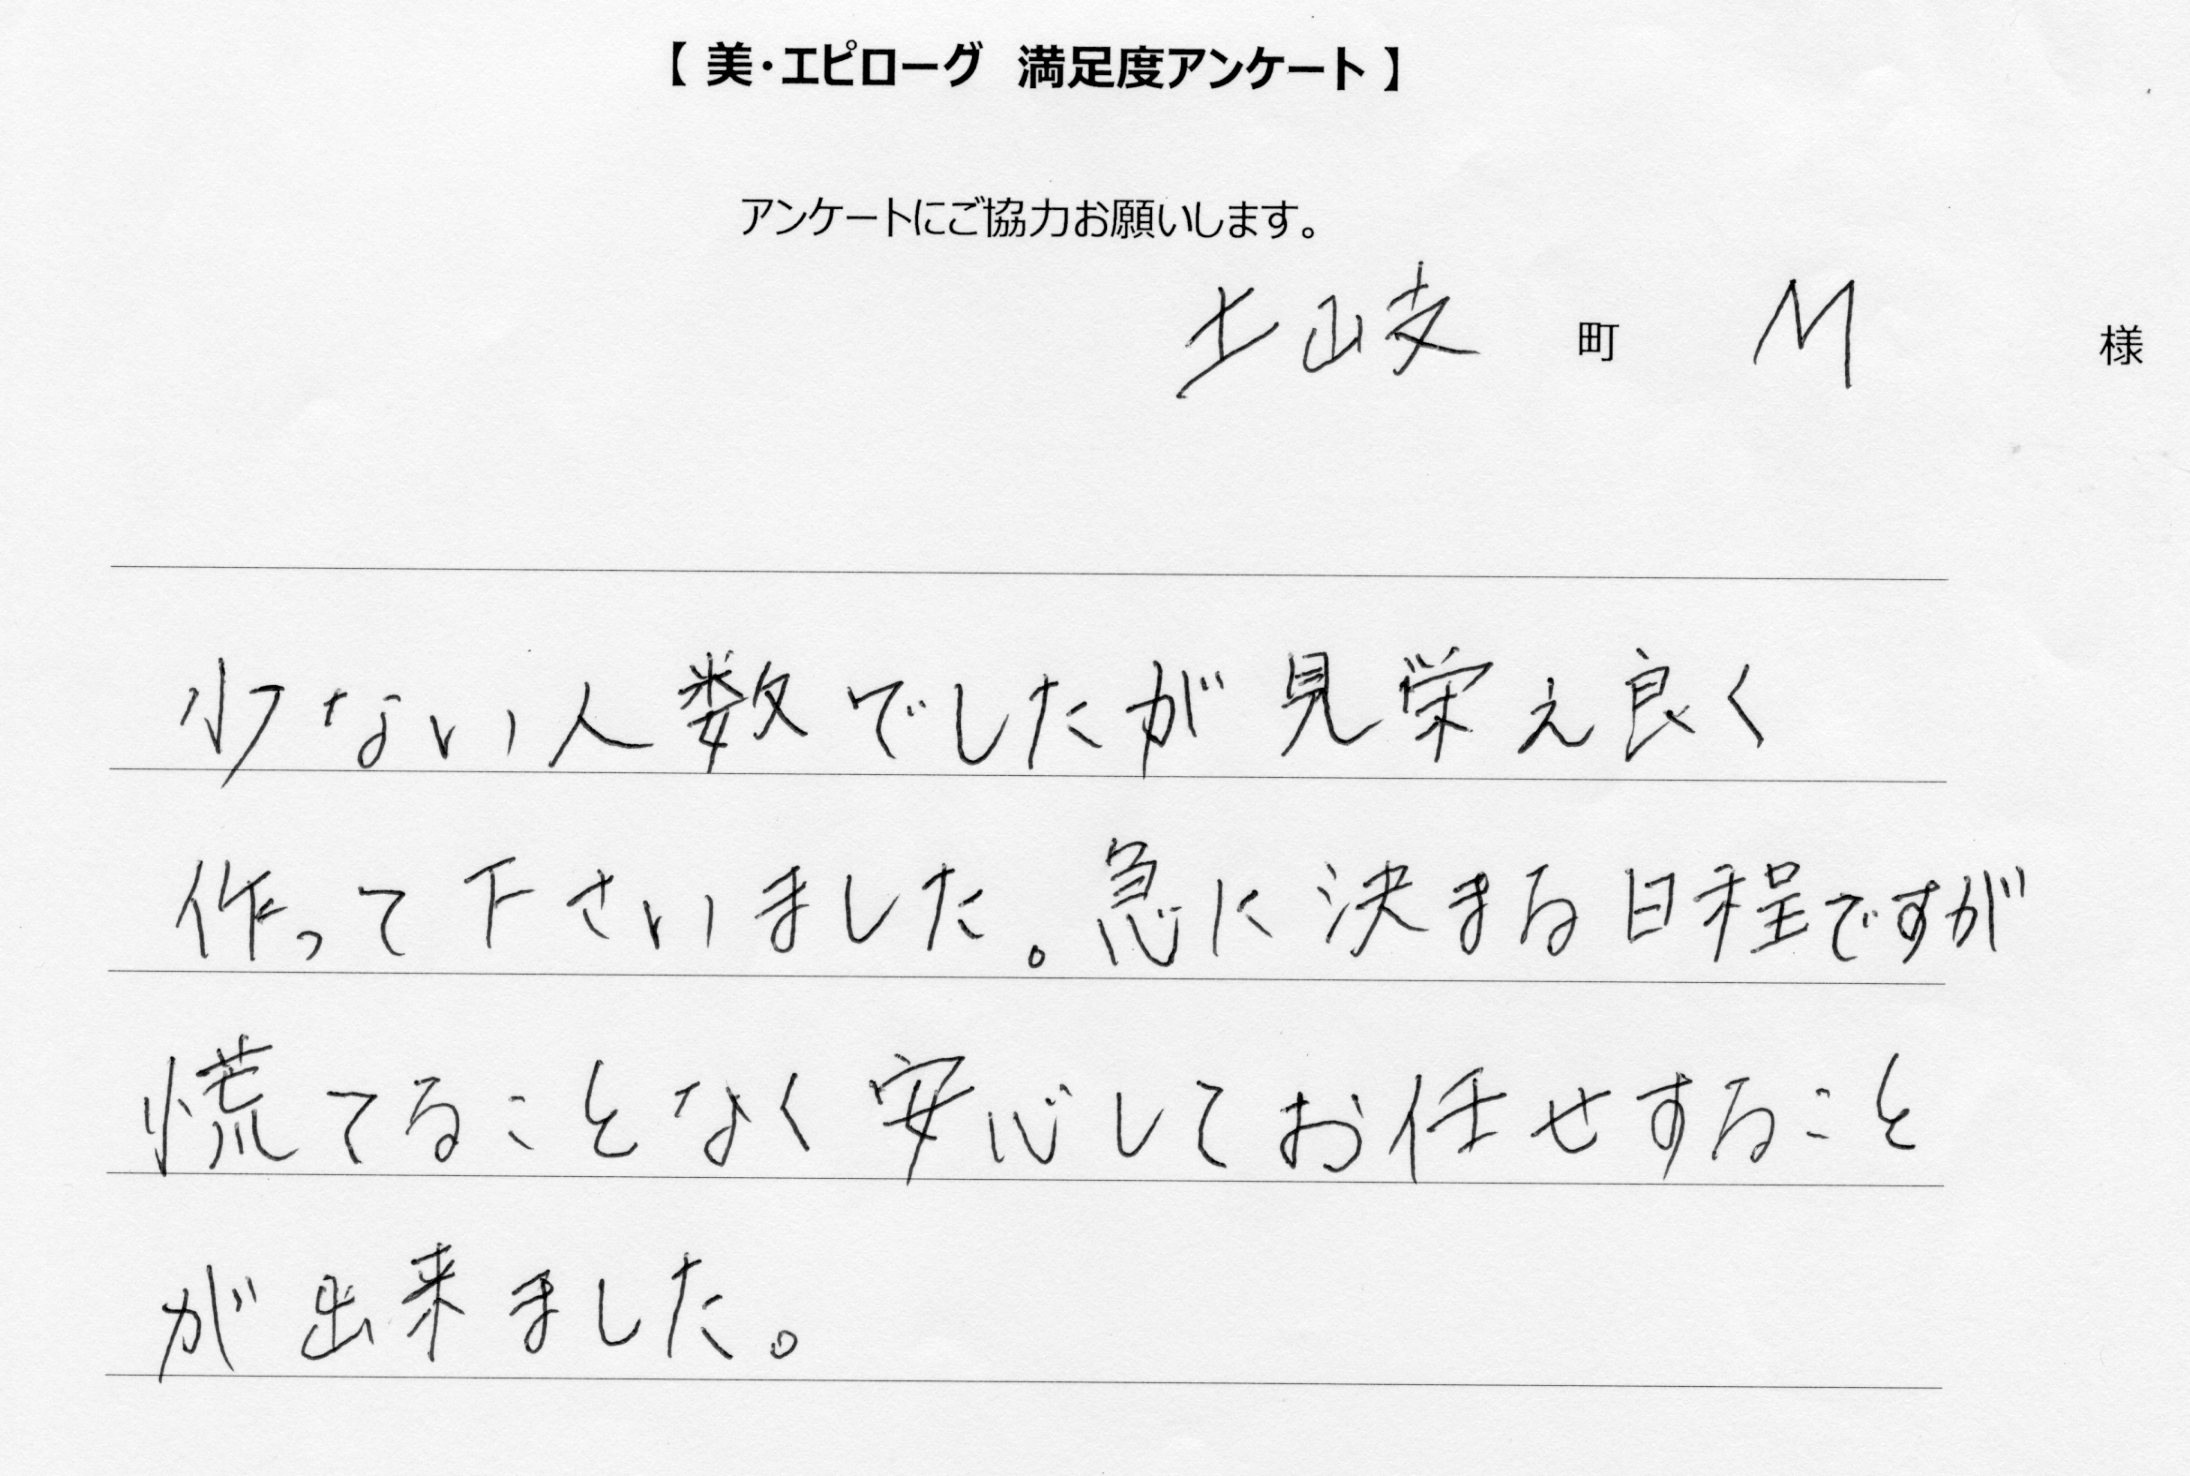 【 美・エピローグ 満足度アンケート 】
アンケートにご協力お願いします。
土岐 町 M 様
少ない人数でしたが見栄え良く
作って下さいました。急に決まる日程ですが
慌てることなく安心してお任せすること
が出来ました。